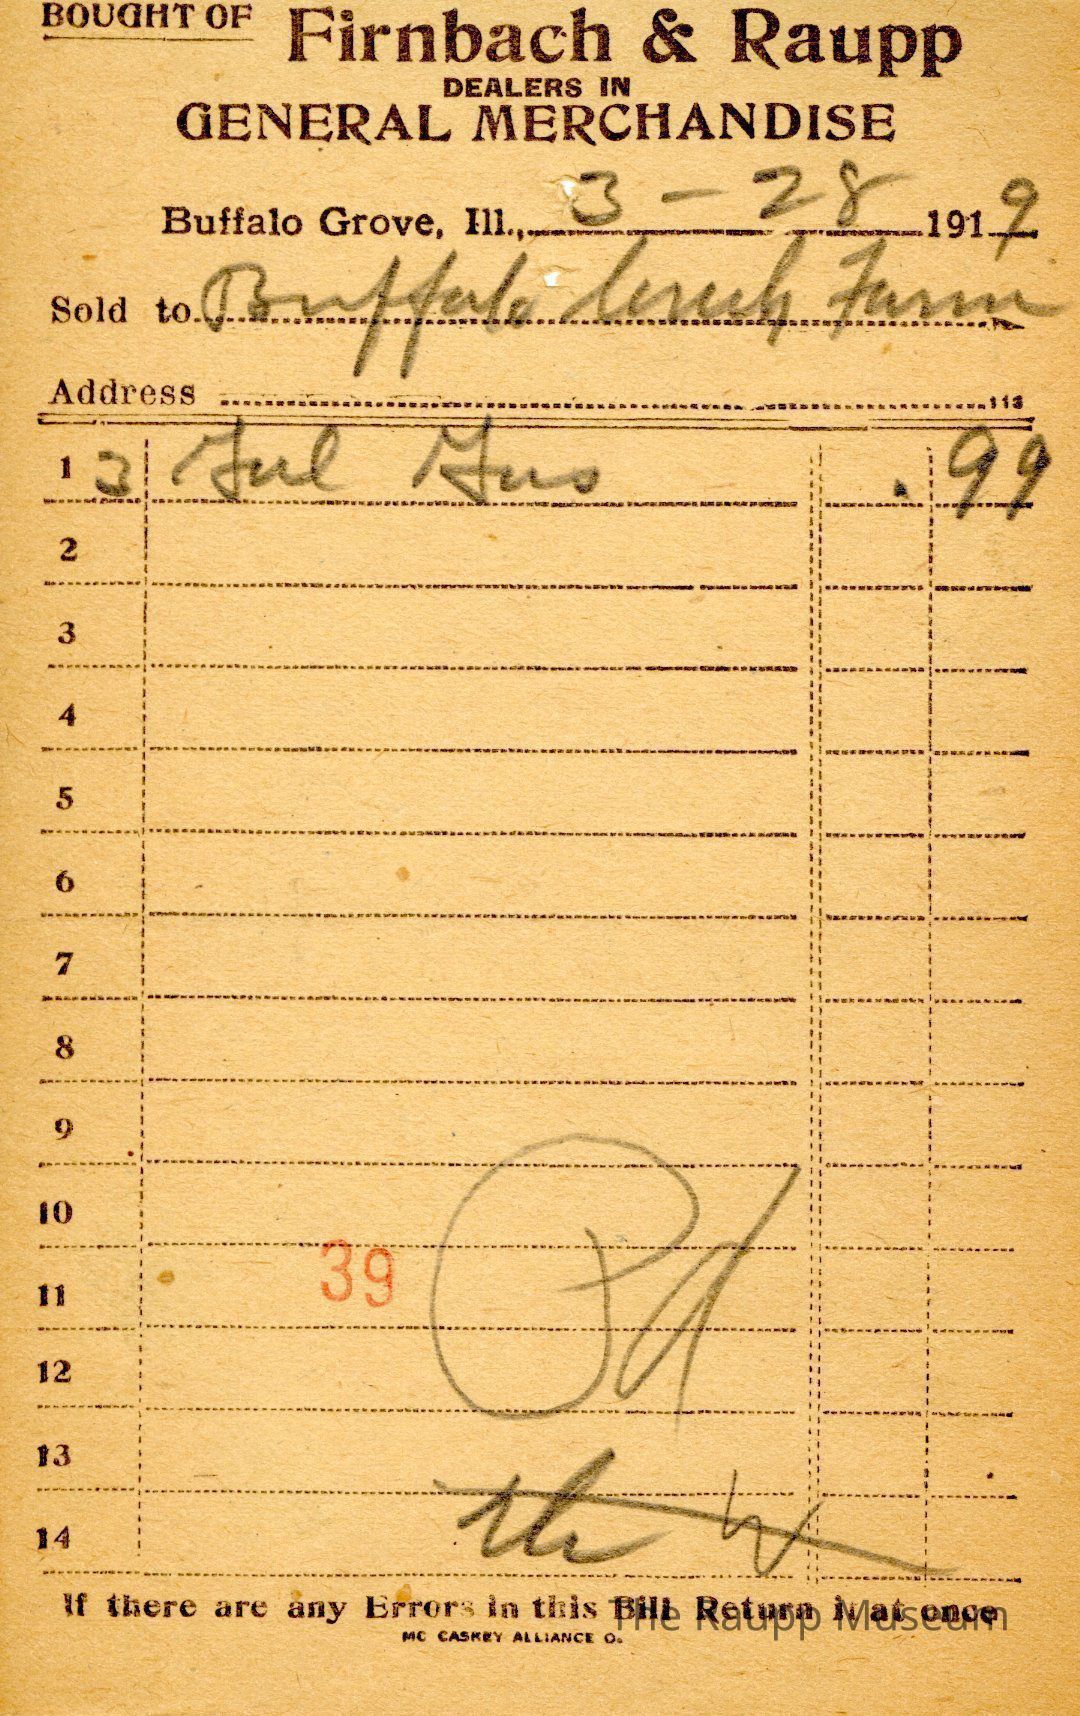 BOUGHT OF Firnbach & Raupp
DEALERS IN
GENERAL MERCHANDISE
Buffalo Grove, Ill., 3-28 1919
Sold to Buffalo Creek Farm
Address 113
1 3 Gal Gas .99
2
3
4
5
6
7
8
9
10
39
11
Pd
12
13
14
If there are any Errors in this Bill Return it at once
The Raupp Museum
MC CASKEY ALLIANCE O.